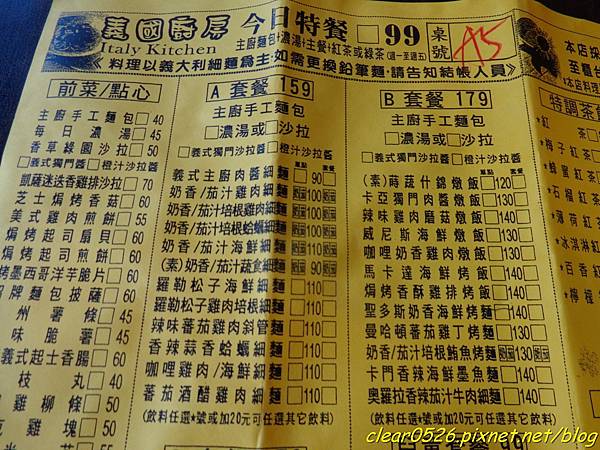 義國廚房 今日特餐 □99 桌號 A5
Italy Kitchen 主廚麵包+濃湯+主餐+紅茶或綠茶(週一至週五)
料理以義大利細麵為主‧如需更換鉛筆麵‧請告知結帳人員》
本店採
至櫃台
前菜/點心
主廚手工麵包□40
每日濃湯□45
香草綠園沙拉□50
□義式獨門沙拉醬□橙汁沙拉醬
凱薩迷迭香雞排沙拉□70
芝士焗烤香菇□60
美式雞肉煎餅□55
焗烤起司扇貝□60
焗烤起司煎餅□60
烤墨西哥洋芋脆片□60
招牌麵包披薩□60
州薯條□45
味脆薯□45
義式起士香腸□60
枝丸□40
雞柳條□50
雞塊□50
A 套餐 159
主廚手工麵包
□濃湯或□沙拉
□義式獨門沙拉醬□橙汁沙拉醬
單點 套餐
義式主廚肉醬細麵□90□
奶香/茄汁雞肉細麵100
奶香/茄汁培根雞肉細麵100
奶香/茄汁培根蛤蠣細麵100
奶香/茄汁海鮮細麵110
(素)奶香/茄汁蔬食細麵90
羅勒松子海鮮細麵□110□
羅勒松子雞肉培根細麵□110□
辣味蕃茄雞肉斜管麵□110□
香辣蒜香蛤蠣細麵□110□
咖哩雞肉/海鮮細麵□110□
蕃茄酒醋雞肉細麵□110□
(飲料任選*號或加20元可任選其它飲料)
B 套餐 179
主廚手工麵包
□濃湯或□沙拉
□義式獨門沙拉醬□橙汁沙拉醬
單點 套餐
(素)蒔蔬什錦燉飯□120□
卡亞獨門肉醬燉飯□130□
辣味雞肉磨菇燉飯□140□
威尼斯海鮮燉飯□130□
咖哩奶香雞肉燉飯□130□
馬卡達海鮮烤飯□140□
焗烤香酥雞排烤飯□140□
聖多斯奶香海鮮烤麵□140□
曼哈頓蕃茄雞丁烤麵□130□
奶香/茄汁培根鮪魚烤麵130
卡門香辣海鮮墨魚麵□140□
奧羅拉香辣茄汁牛肉細麵□140□
(飲料任選*號或加20元可任選其它飲料)
特調茶飲
紅茶□
*梅子紅茶□
*蜂蜜紅茶□
*石榴紅茶□
*薄荷紅茶□
*冰淇淋紅
*百香紅
*檸檬
clear0526.pixnet.net/blog